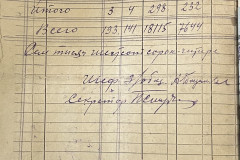 Итого 3 4 298 232
Всего 193 141 18115 7644
Семь тысяч шестьсот сорок четыре
Секретарь